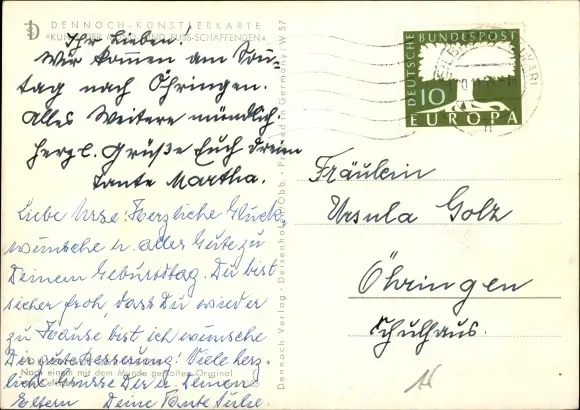 DENNOCH-KÜNSTLERKARTE
Ihr Lieben!
Wir kommen am Sonn-
tag nach Öhringen.
Alles Weitere mündlich.
Herzl. Grüße Euch dreien
Tante Martha.
Liebe Urse! Herzliche Glück
wünsche u. alles Gute zu
Deinem Geburtstag. Du bist
sicher froh, dass Du wieder
zu Hause bist ich wünsche
Dir gute Besserung! Viele herz
liche Grüsse Dir u. Deinen
Eltern Deine Tante Julie.
Nach einem mit dem Munde gemalten Original
Dennoch Verlag - Deisenhofen/Obb. - Printed in Germany/W 57
DEUTSCHE BUNDESPOST
10
EUROPA
Fräulein
Ursula Golz
Öhringen
Schulhaus.